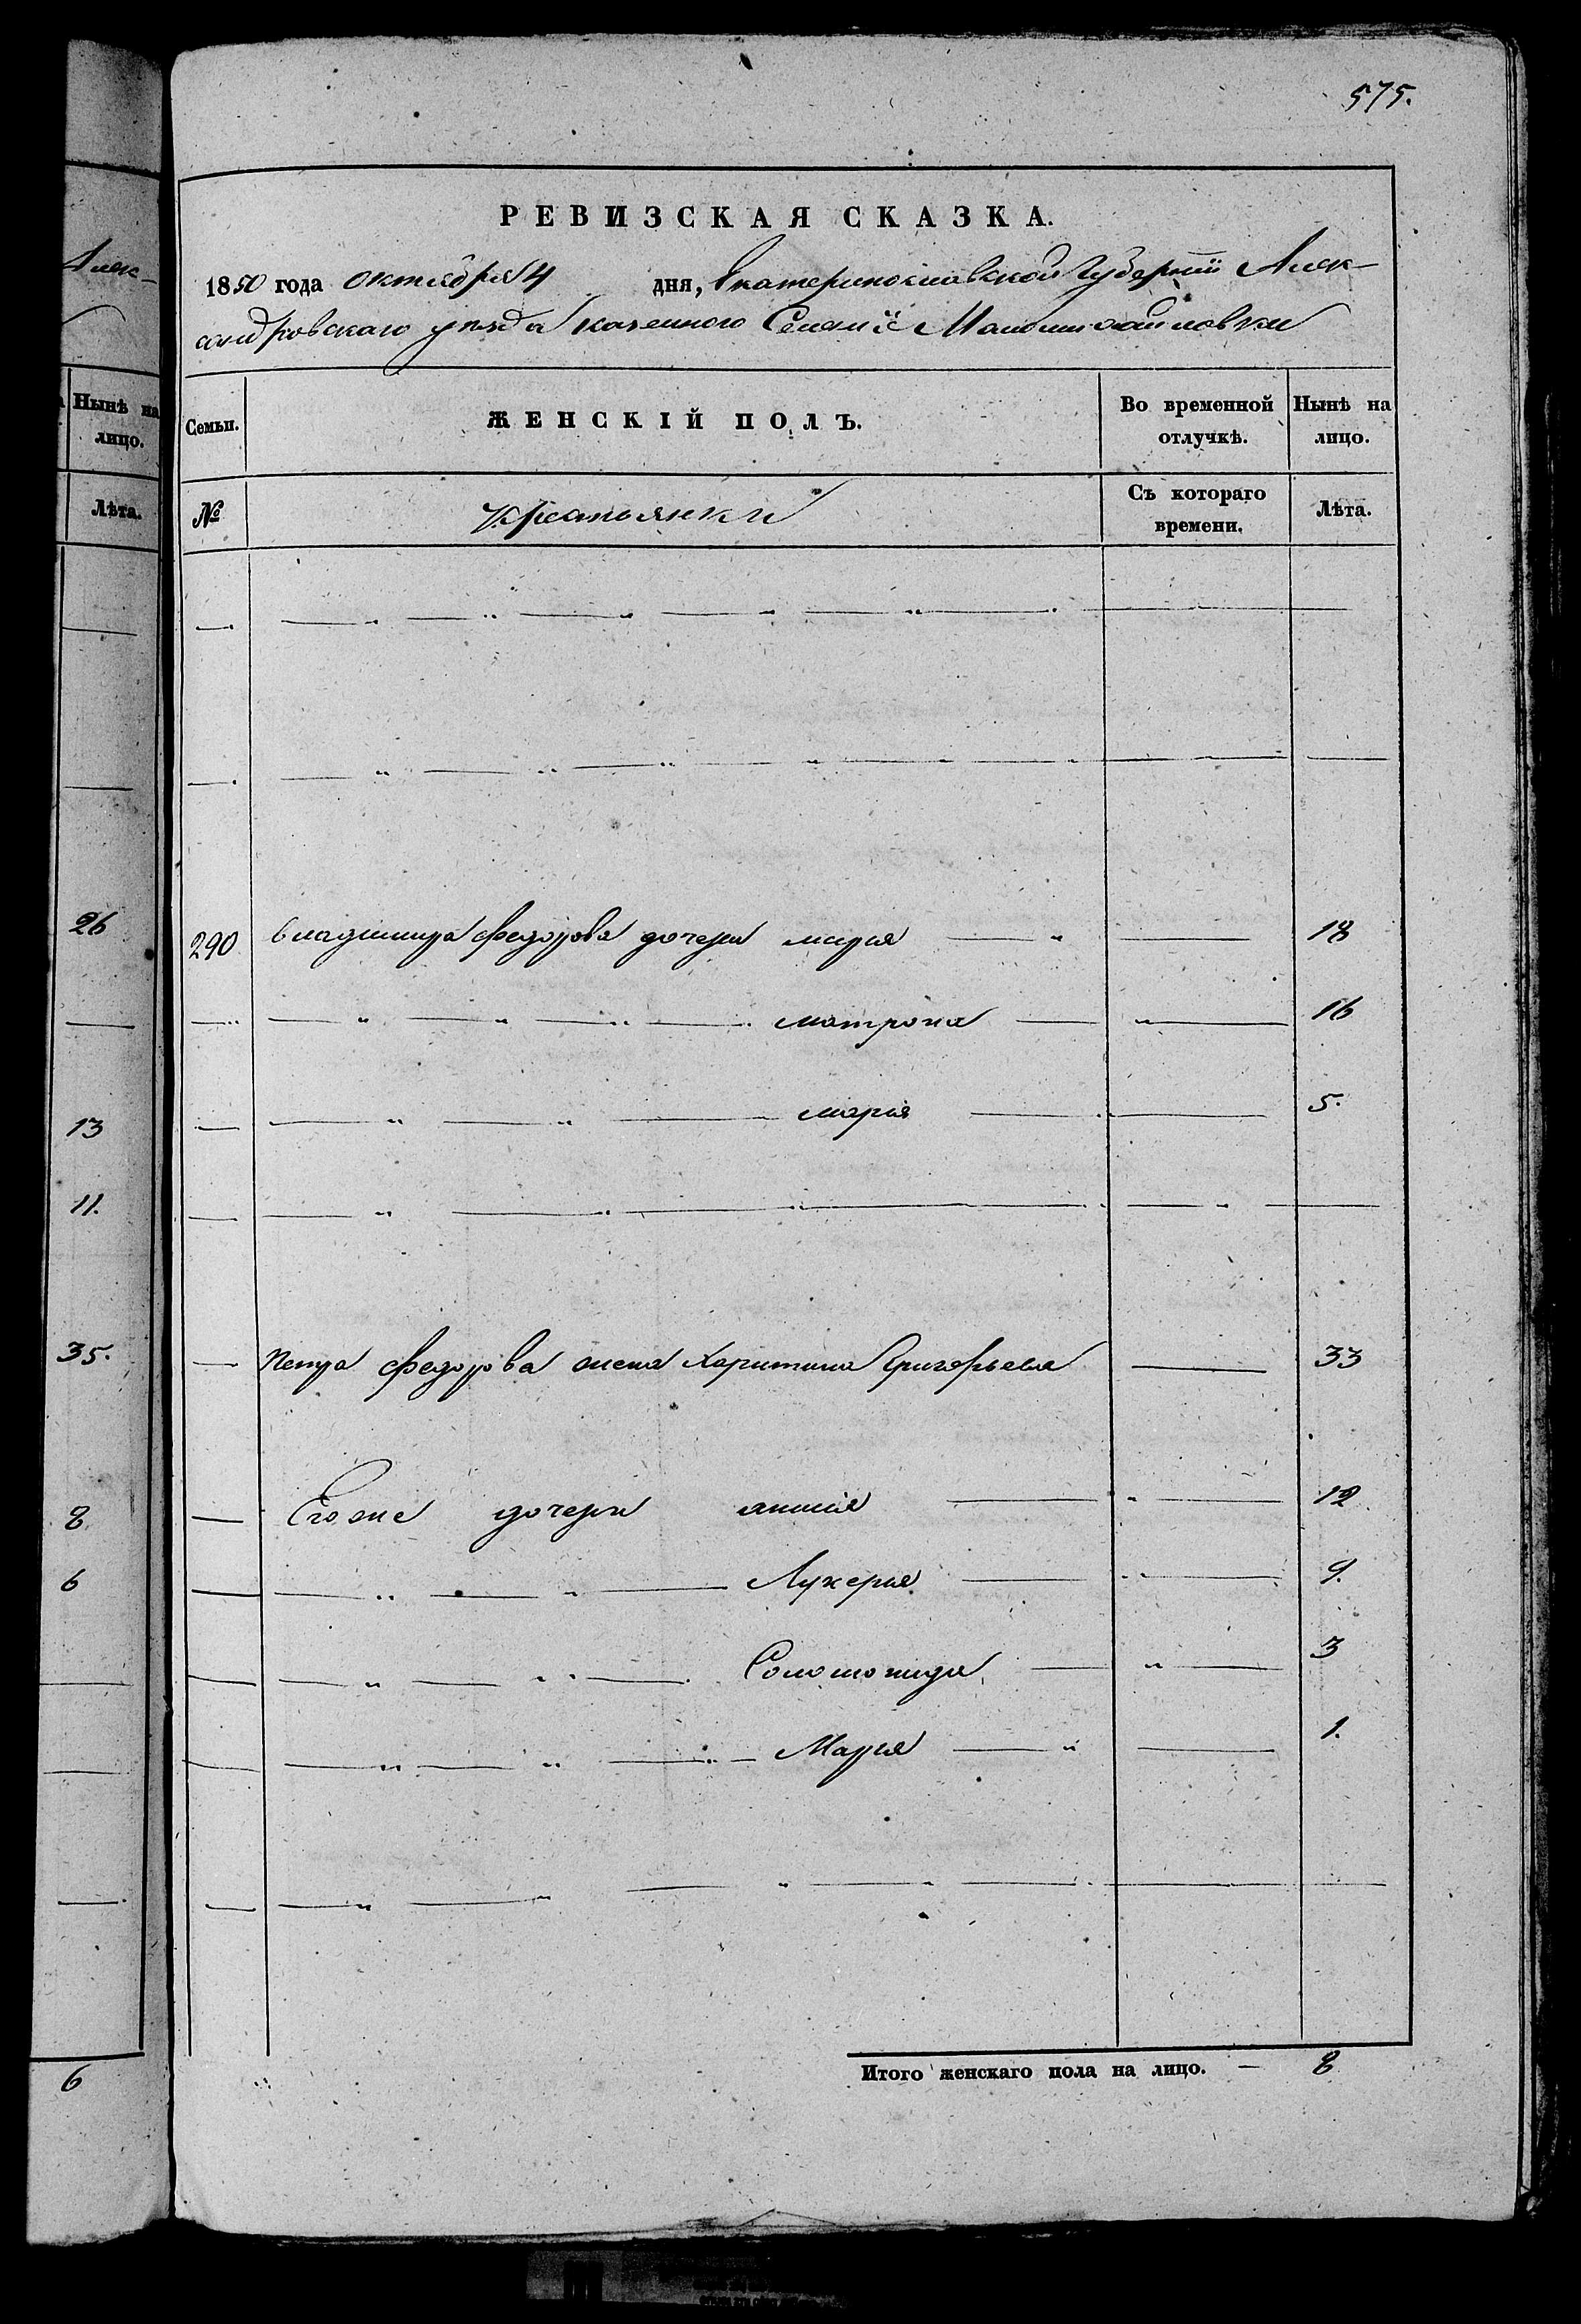 575.
РЕВИЗСКАЯ СКАЗКА.
1850 года октября 4 дня, Екатеринославской Губернiи Алек-
сандровскаго уезда казенного Селенiя Маломихайловки
Семьи. ЖЕНСКІЙ ПОЛЪ. Во временной отлучкѣ. Нынѣ на лицо.
№ крестьянки Съ котораго времени. Лѣта.
290 владимира федорова дочери марья 18
матрона 16
марья 5.
Петра федорова жена Харитина Григорьева 33
Его же дочери 12
Лукерья 9.
Соломонида 3
Марья 1.
Итого женскаго пола на лицо. — 8
Алек-
Нынѣ на
лицо.
Лѣта.
26
13
11.
35.
8
6
6